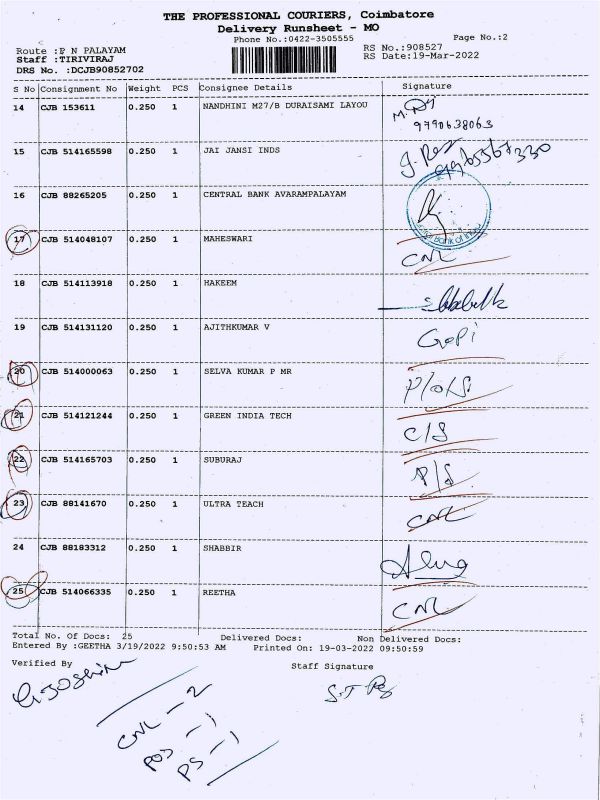 THE PROFESSIONAL COURIERS, Coimbatore
Delivery Runsheet - MO
Phone No.:0422-3505555
Page No.:2
Route :P N PALAYAM
RS No.:908527
Staff :TIRIVIRAJ
RS Date:19-Mar-2022
DRS No. :DCJB90852702
S No Consignment No Weight PCS Consignee Details Signature
14 CJB 153611 0.250 1 NANDHINI M27/B DURAISAMI LAYOU
9790638063
15 CJB 514165598 0.250 1 JAI JANSI INDS
16 CJB 88265205 0.250 1 CENTRAL BANK AVARAMPALAYAM
Bank of
17 CJB 514048107 0.250 1 MAHESWARI CNL
18 CJB 514113918 0.250 1 HAKEEM
19 CJB 514131120 0.250 1 AJITHKUMAR V Gopi
20 CJB 514000063 0.250 1 SELVA KUMAR P MR
21 CJB 514121244 0.250 1 GREEN INDIA TECH C/S
22 CJB 514165703 0.250 1 SUBURAJ P/S
23 CJB 88141670 0.250 1 ULTRA TEACH CNL
24 CJB 88183312 0.250 1 SHABBIR
25 CJB 514066335 0.250 1 REETHA CNL
Total No. Of Docs: 25 Delivered Docs: Non Delivered Docs:
Entered By :GEETHA 3/19/2022 9:50:53 AM Printed On: 19-03-2022 09:50:59
Verified By Staff Signature
CNL - 2
PS - 1